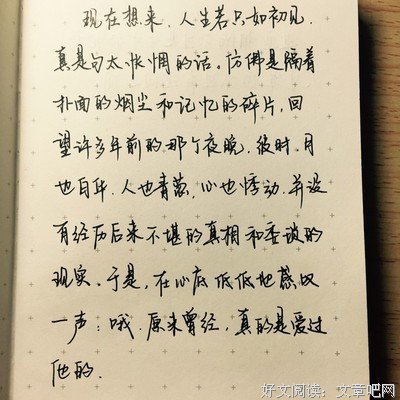 现在想来，人生若只如初见，
真是句太怅惘的话。仿佛是隔着
扑面的烟尘和记忆的碎片，回
望许多年前的那个夜晚，彼时，月
也白华，人也青葱，心也悸动，并没
有经历后来不堪的真相和委琐的
现实。于是，在心底低低地感叹
一声：哦，原来曾经，真的是爱过
他的。
好文阅读：文章吧网